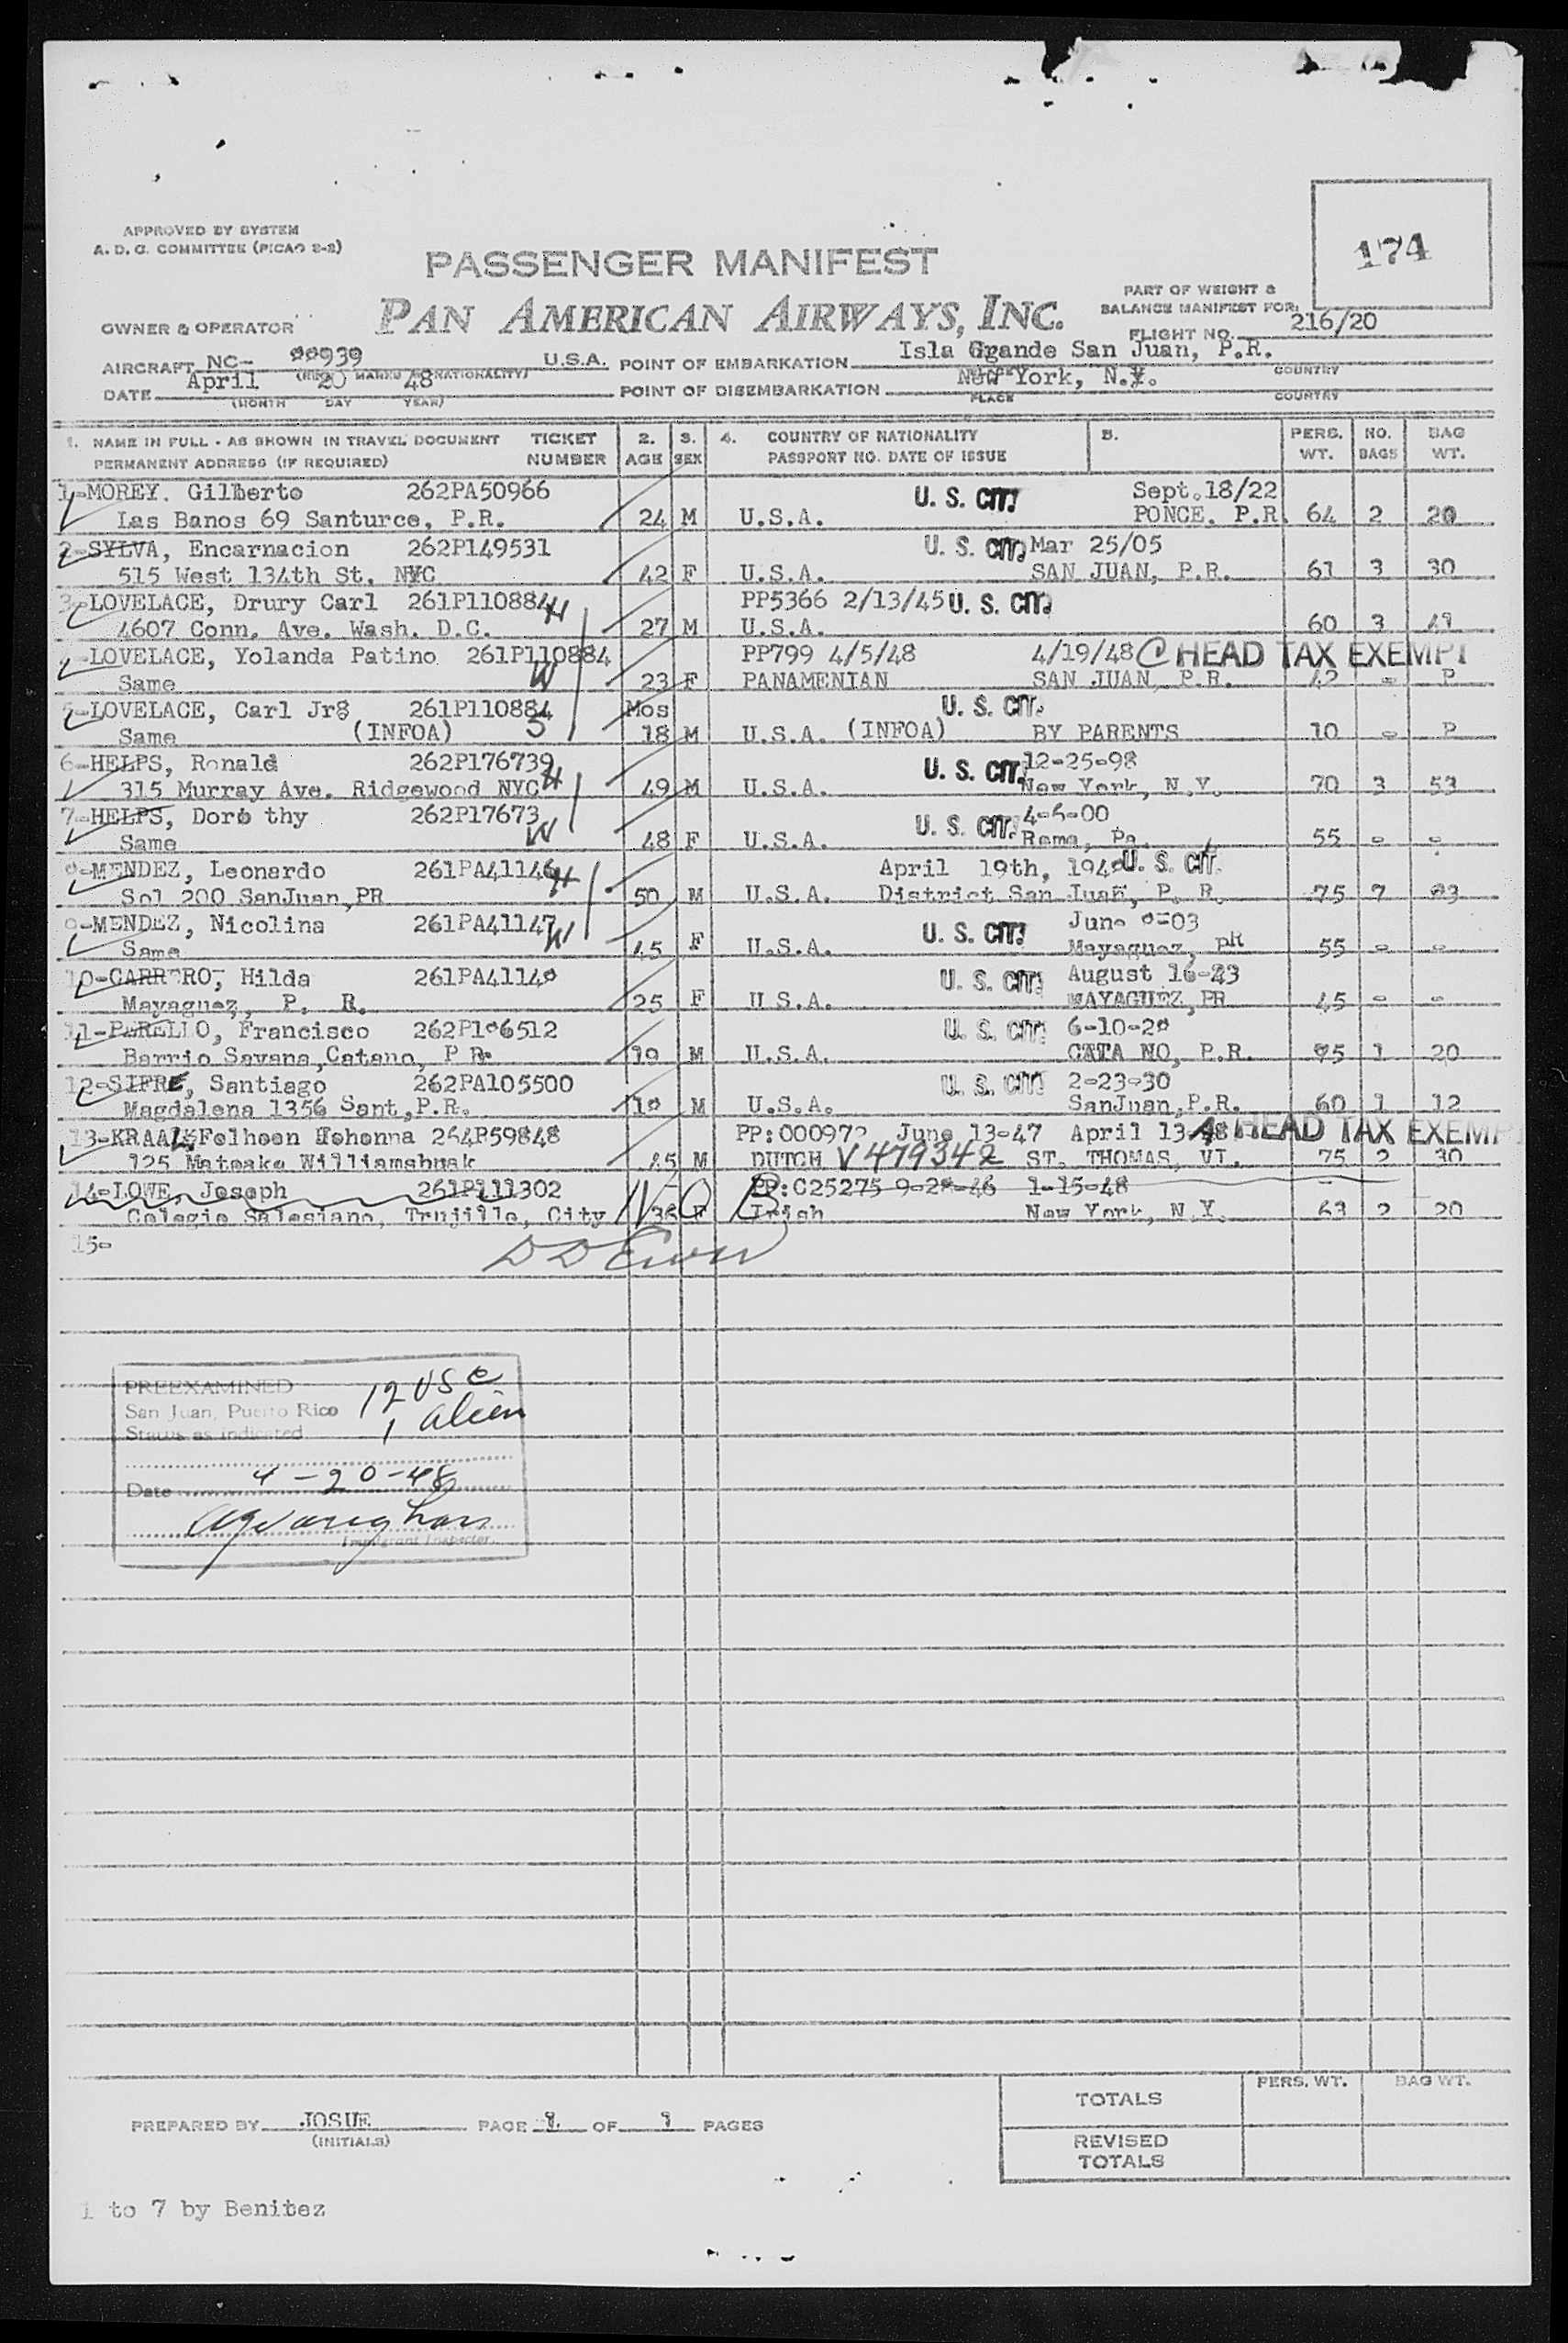 APPROVED BY SYSTEM
A. D. C. COMMITTEE (PICAO 2-2)
174
PASSENGER MANIFEST
PAN AMERICAN AIRWAYS, INC.
PART OF WEIGHT &
BALANCE MANIFEST FOR:
FLIGHT NO. 216/20
OWNER & OPERATOR
AIRCRAFT NC- 88939 U.S.A. POINT OF EMBARKATION Isla Grande San Juan, P.R.
MARKS NATIONALITY) COUNTRY
DATE April 20 48 POINT OF DISEMBARKATION New York, N.Y.
(MONTH DAY YEAR) PLACE COUNTRY
1. NAME IN FULL - AS SHOWN IN TRAVEL DOCUMENT TICKET 2. 3. 4. COUNTRY OF NATIONALITY 5. PERS. NO. BAG
PERMANENT ADDRESS (IF REQUIRED) NUMBER AGE SEX PASSPORT NO. DATE OF ISSUE WT. BAGS WT.
1-MOREY. Gilberto 262PA50966 U. S. CIT. Sept.18/22
Las Banos 69 Santurce, P.R. 24 M U.S.A. PONCE. P.R. 64 2 20
2-SYLVA, Encarnacion 262P149531 U. S. CIT. Mar 25/05
515 West 134th St. NYC 42 F U.S.A. SAN JUAN, P.R. 61 3 30
3-LOVELACE, Drury Carl 261P110884 H PP5366 2/13/45 U. S. CIT.
4607 Conn. Ave. Wash. D.C. 27 M U.S.A. 60 3 49
-LOVELACE, Yolanda Patino 261P110884 PP799 4/5/48 4/19/48 C HEAD TAX EXEMPT
Same W 23 F PANAMENIAN SAN JUAN, P.R. 42 - P
5-LOVELACE, Carl Jr8 261P110884 Mos U. S. CIT.
Same (INFOA) S 18 M U.S.A. (INFOA) BY PARENTS 10 - P
6-HELPS, Ronald 262P176739 U. S. CIT. 12-25-98
315 Murray Ave. Ridgewood NYC H 49 M U.S.A. New York, N.Y. 70 3 53
7-HELPS, Doro thy 262P17673 U. S. CIT. 4-6-00
Same W 48 F U.S.A. Rome, Pa. 55 - -
8-MENDEZ, Leonardo 261PA41146 H April 19th, 1948 U. S. CIT.
Sol 200 SanJuan,PR 50 M U.S.A. District San Juan, P. R. 75 7 83
9-MENDEZ, Nicolina 261PA41147 W U. S. CIT. June 8-03
Same 45 F U.S.A. Mayaguez, PR 55 - -
10-CARRERO, Hilda 261PA41148 U. S. CIT. August 16-23
Mayaguez, P. R. 25 F U.S.A. MAYAGUEZ,PR 45 - -
11-PERELLO, Francisco 262P186512 U. S. CIT. 6-10-28
Barrio Savana,Catano, P R. 19 M U.S.A. CATA NO, P.R. 75 1 20
12-SIFRE, Santiago 262PA105500 U. S. CIT. 2-23-30
Magdalena 1356 Sant,P.R. 18 M U.S.A. SanJuan,P.R. 60 1 12
13-KRAAL Felhoen Johonna 264P59848 PP:000972 June 13-47 April 13-48 HEAD TAX EXEMP
125 Matoaka Williamsburk 45 M DUTCH V 479342 ST. THOMAS, VI. 75 2 30
14-LOWE, Joseph 261P111302 N O B PP:C25275 9-28-46 1-15-48
Colegio Salesiano, Trujillo, City 36 F Irish New York, N.Y. 63 2 20
15-
PREEXAMINED 12 USC
San Juan, Puerto Rico 1 alien
Status as indicated
Date 4-20-48
Immigrant Inspector
TOTALS PERS. WT. BAG WT.
PREPARED BY JOSUE PAGE 1 OF 1 PAGES
(INITIALS)
REVISED
TOTALS
1 to 7 by Benitez